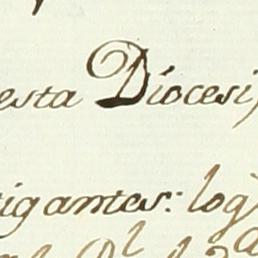 esta Diocesi,
igantes: log